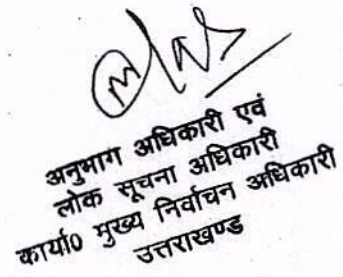 अनुभाग अधिकारी एवं
लोक सूचना अधिकारी
कार्या0 मुख्य निर्वाचन अधिकारी
उत्तराखण्ड